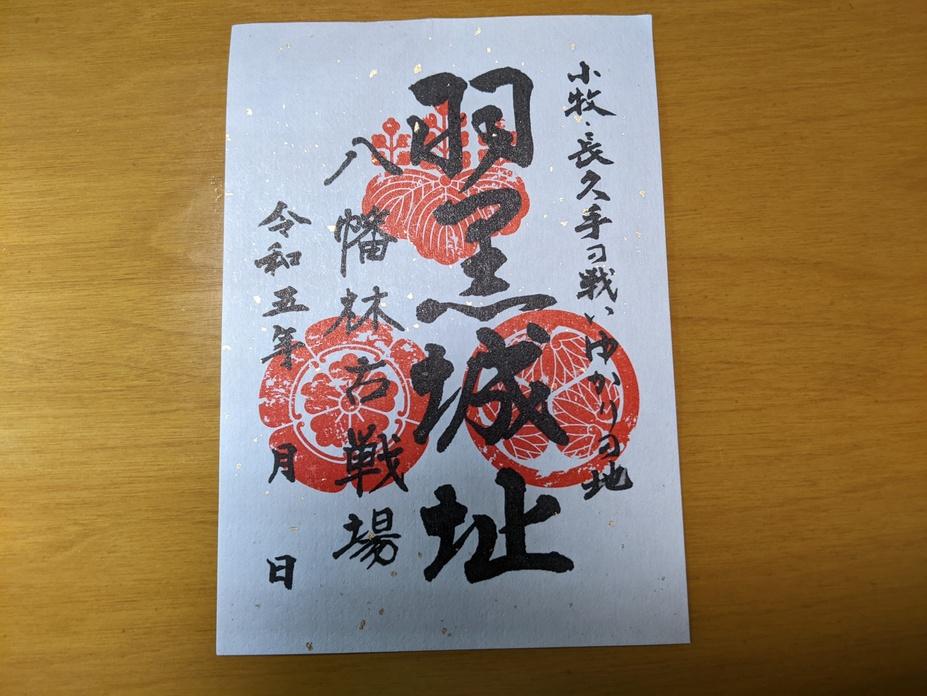 小牧・長久手の戦いゆかりの地
羽黒城址
八幡林古戦場
令和五年 月 日